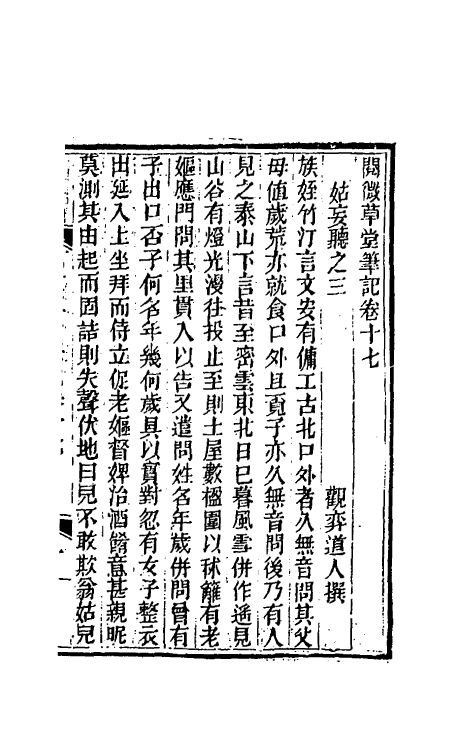 閱微草堂筆記卷十七
姑妄聽之三 觀弈道人撰
族姪竹汀言文安有傭工古北口外者久無音問其父
母值歲荒亦就食口外且覓子亦久無音問後乃有人
見之泰山下言昔至密雲東北日已暮風雪併作遥見
山谷有燈光漫往投止至則土屋數楹圍以秫籬有老
嫗應門問其里貫入以告又遣問姓名年歲併問曾有
子出口否子何名年幾何歲具以實對忽有女子整衣
出延入上坐拜而侍立促老嫗督婢治酒餚意甚親昵
莫測其由起而固詰則失聲伏地曰兒不敢欺翁姑兒